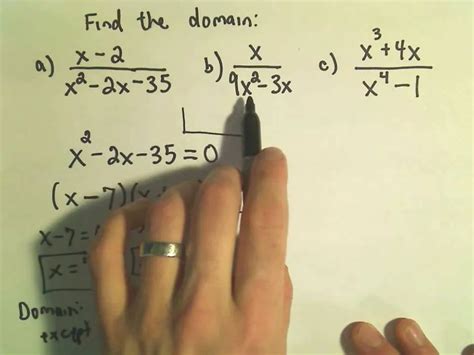 Find the domain:
a) x-2 / x²-2x-35 b) x / 9x²-3x c) x³+4x / x⁴-1
x²-2x-35=0
(x-7)(
x-7=
x=
Domain:
except